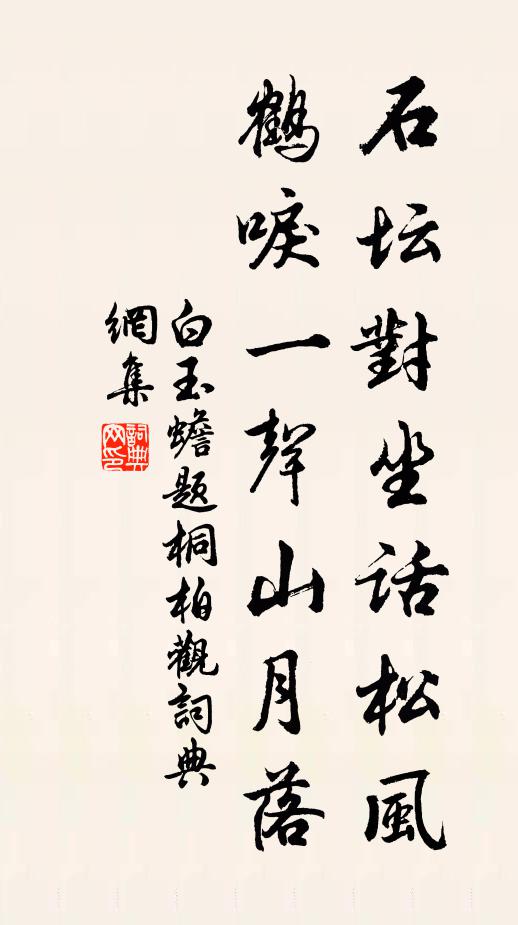 石坛對坐話松風
鶴唳一聲山月落
白玉蟾題桐柏觀詞典
網集
詞典
网印